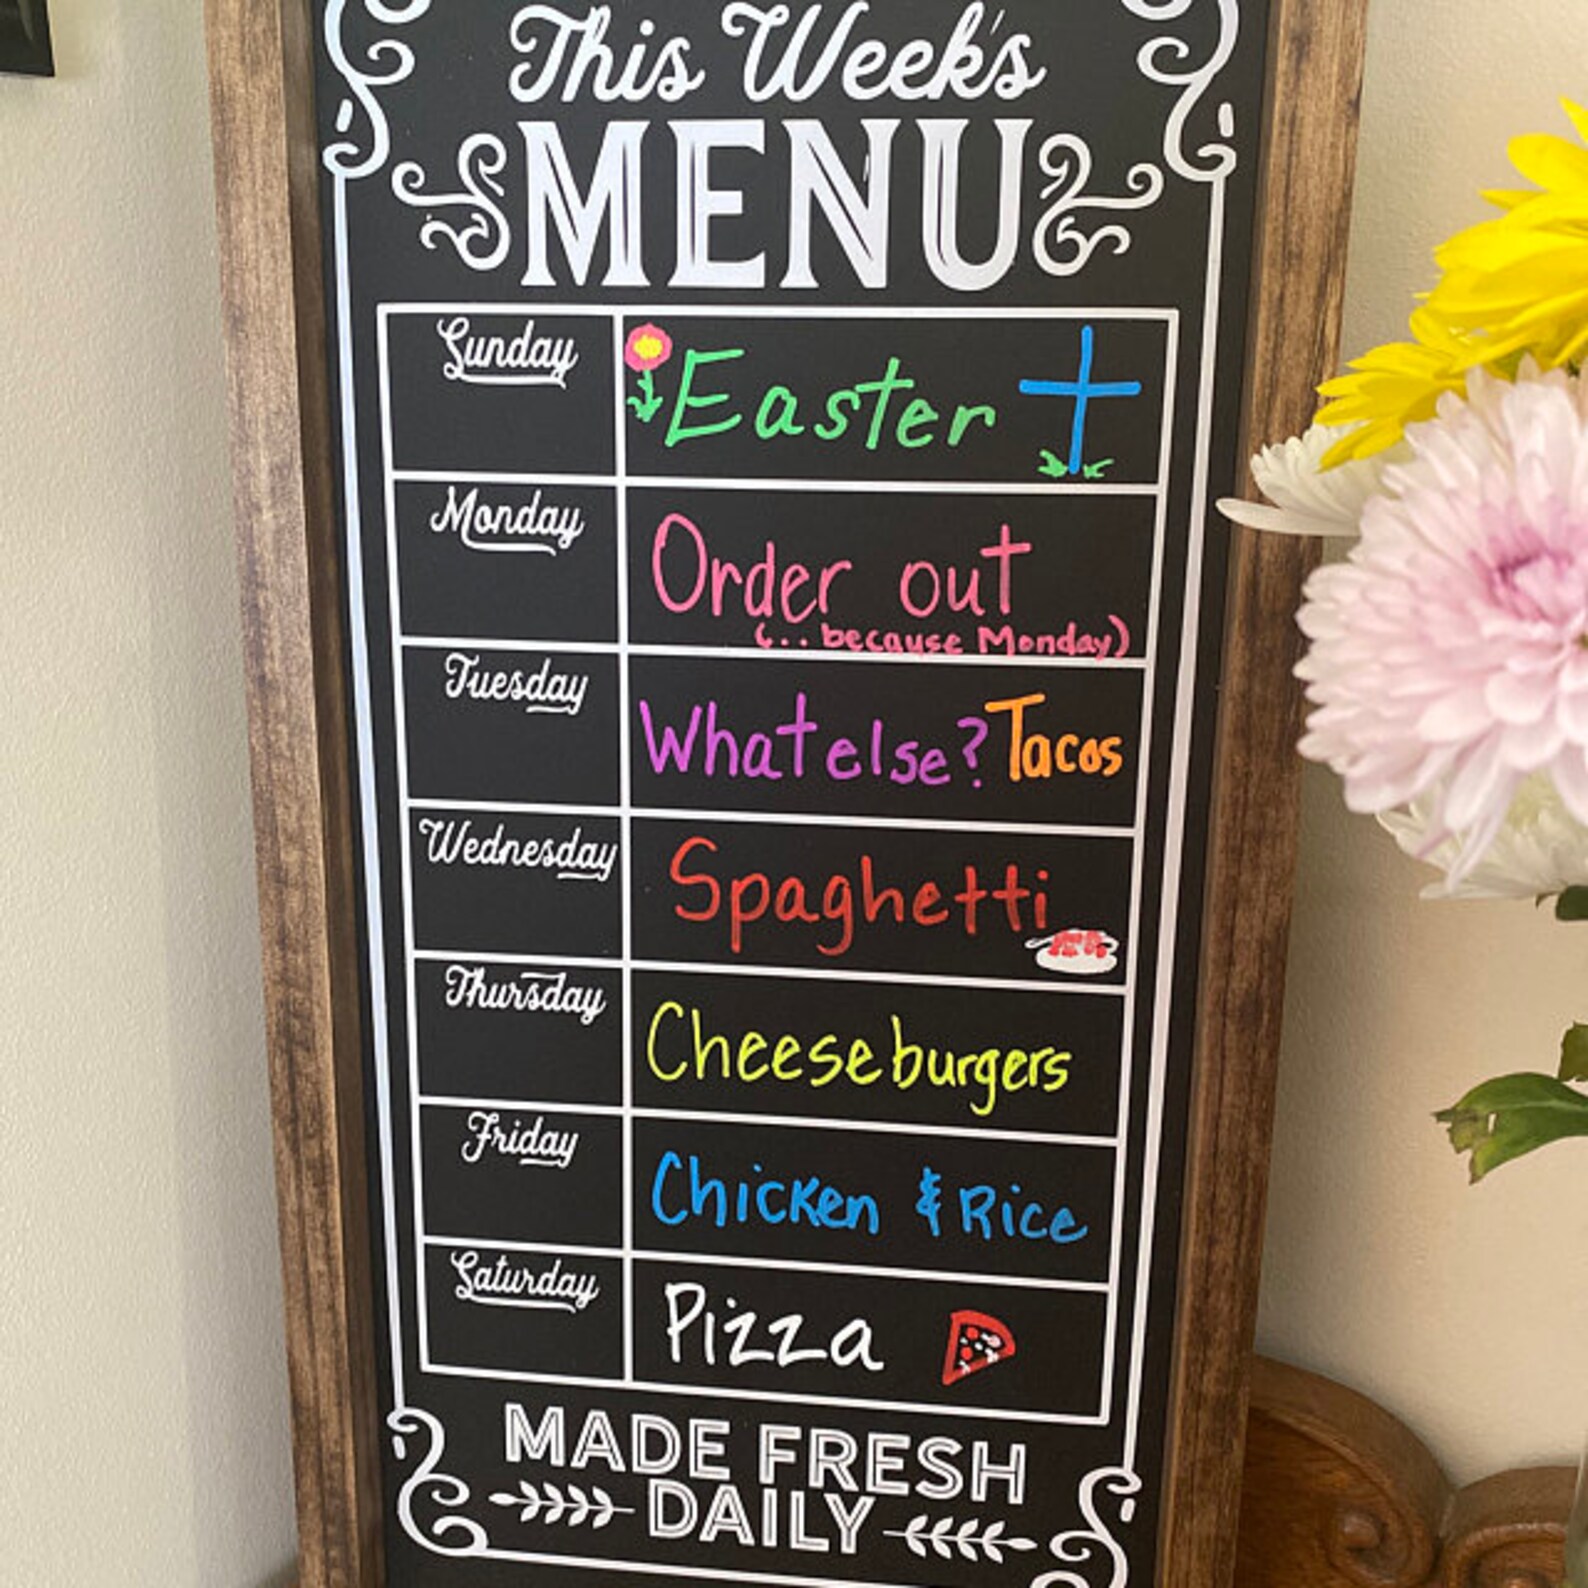 This Week's
MENU
Sunday
Easter
Monday
Order out
(.. because Monday)
Tuesday
What else? Tacos
Wednesday
Spaghetti
Thursday
Cheeseburgers
Friday
Chicken & Rice
Saturday
Pizza
MADE FRESH
DAILY